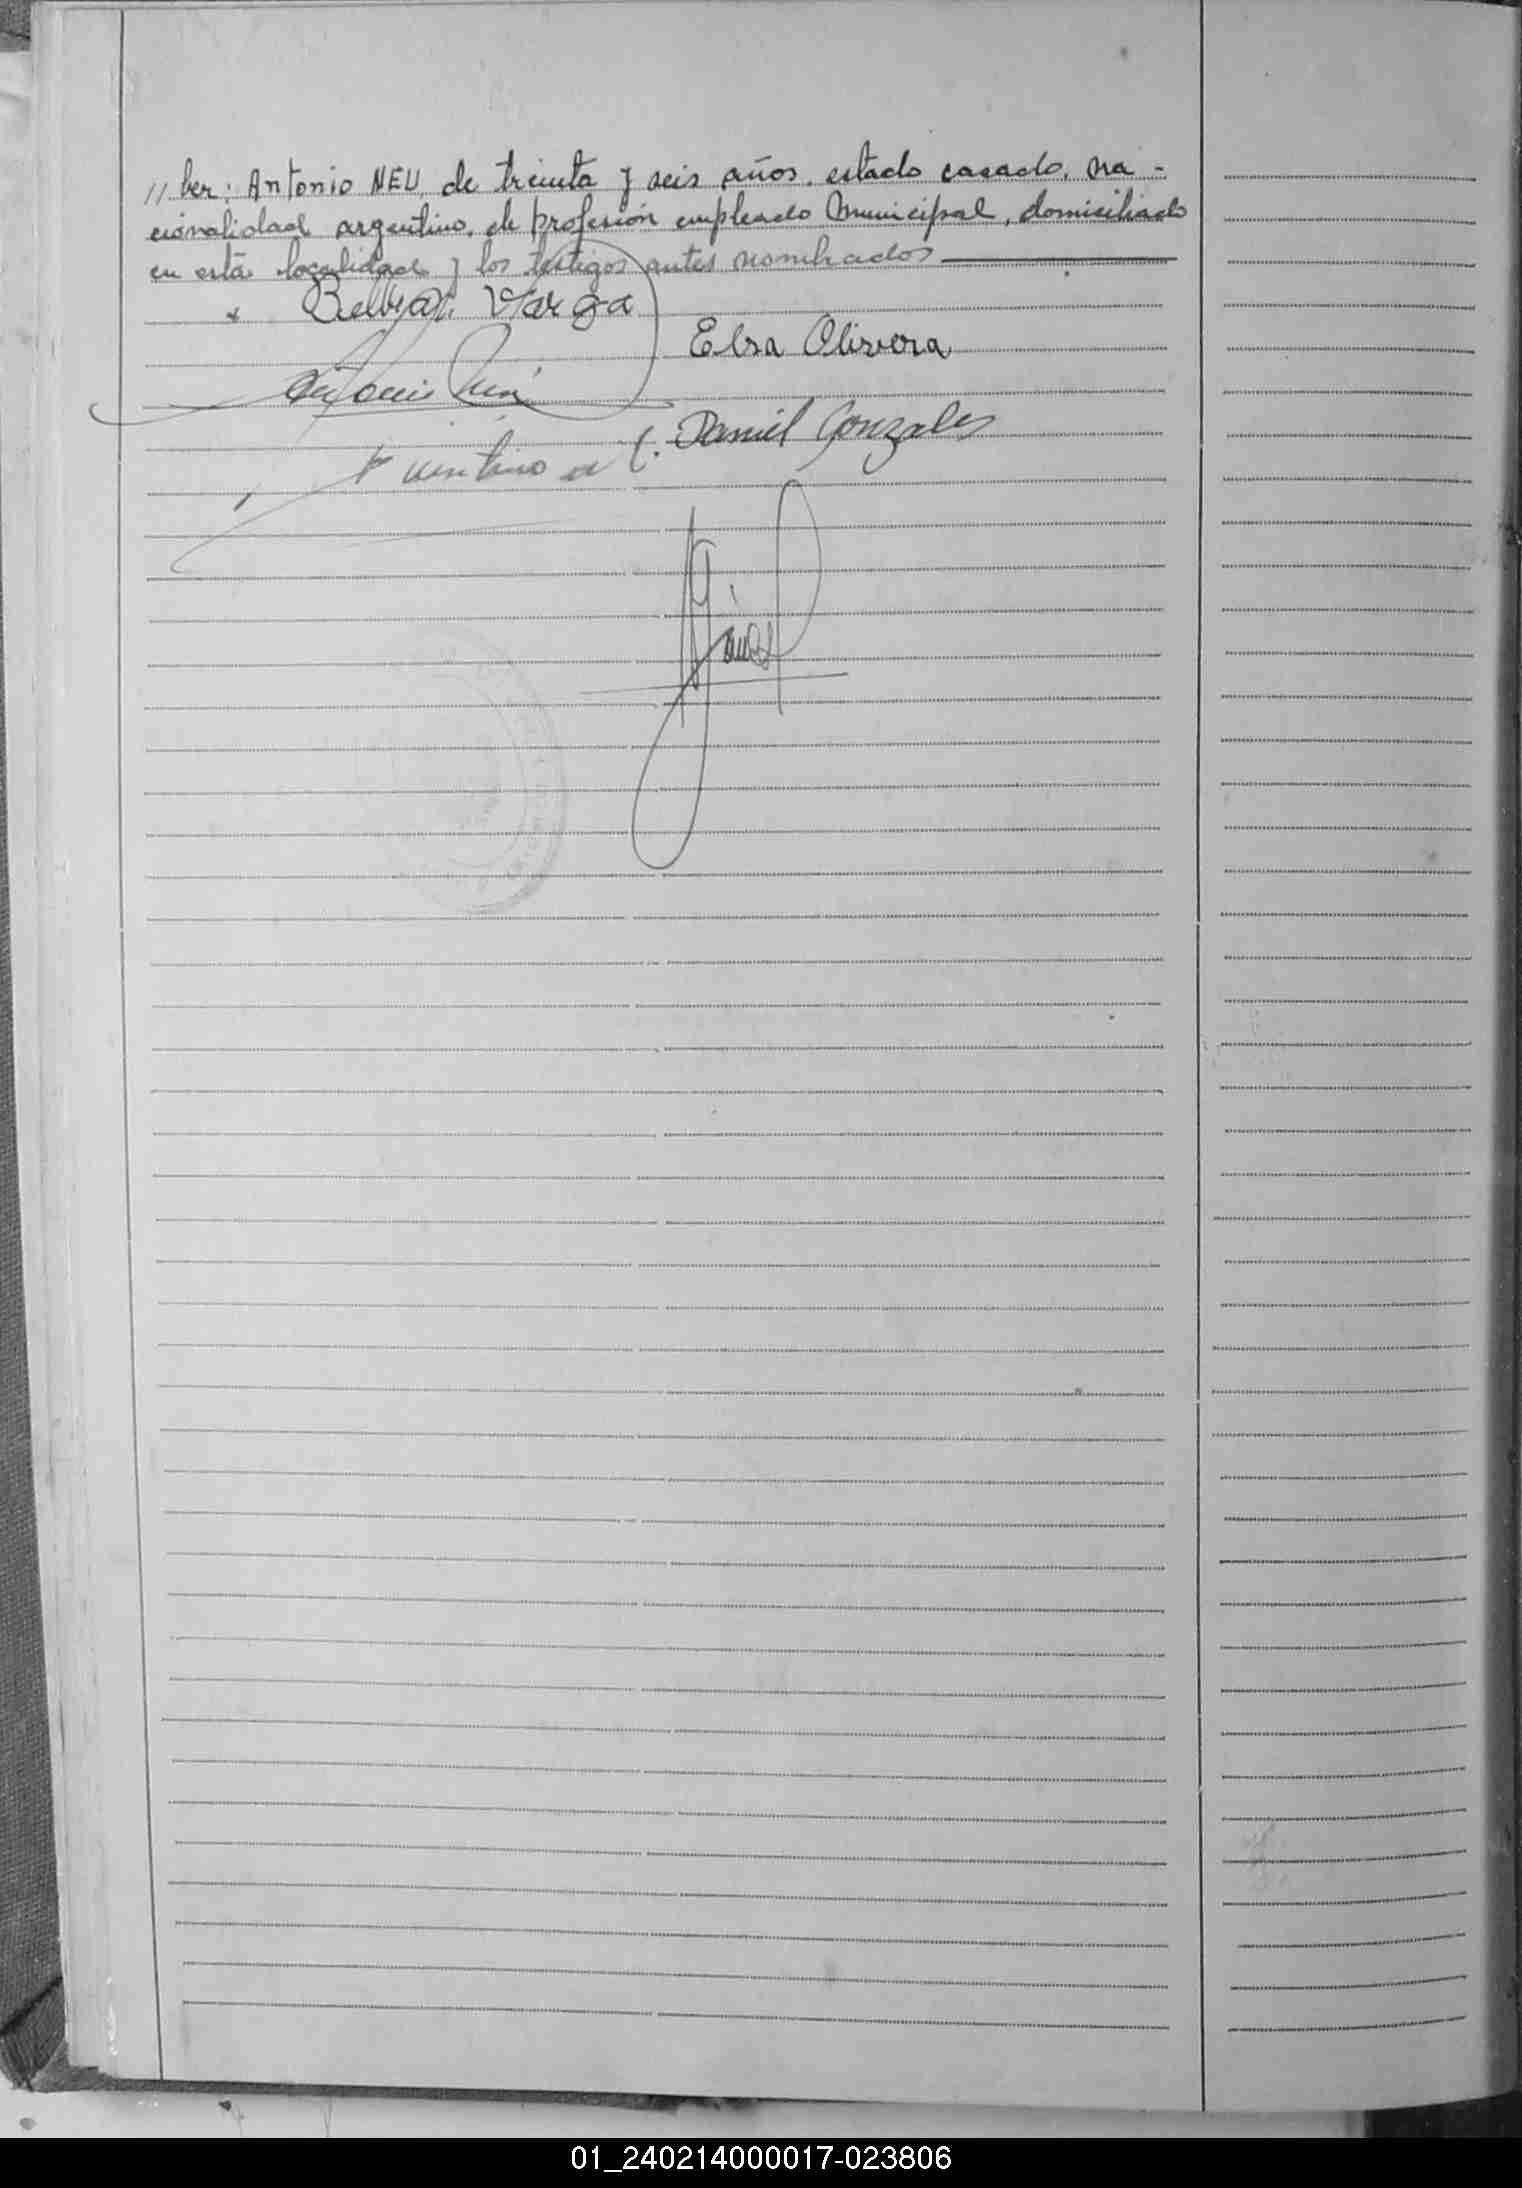 //ber: Antonio NEU, de treinta y seis años, estado casado, na-
cionalidad argentino, de profesión empleado Municipal, domiciliado
en está localidad y los testigos antes nombrados
Varga
Elsa Olivera
Antonio
Daniel Gonzales
01_240214000017-023806